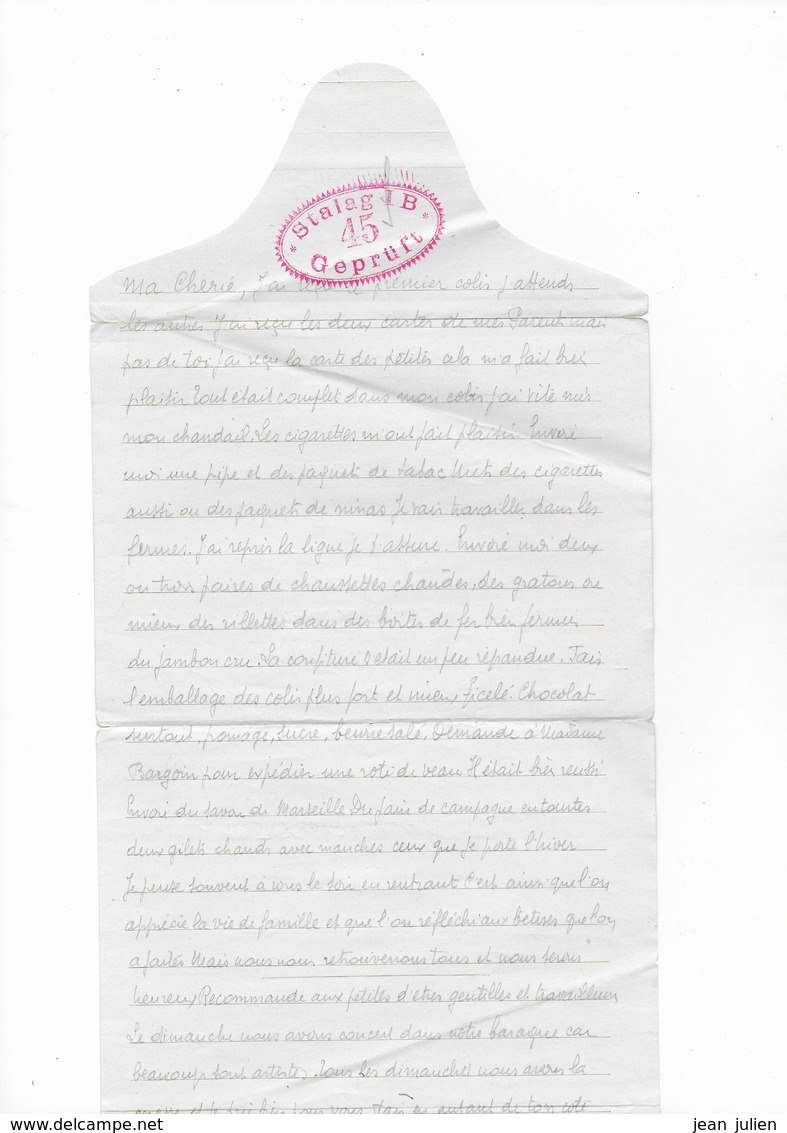 * Stalag I B *
45
Geprüft
Ma Cherie, J'ai reçu le premier colis j'attends
les autres J'ai reçu les deux cartes de mes Parents mais
pas de toi j'ai reçu la carte des petites cela m'a fait bien
plaisir Tout était complet dans mon colis j'ai vite mis
mon chandail. Les cigarettes m'ont fait plaisir. Envoie
moi une pipe et des paquets de tabac Mets des cigarettes
aussi ou des paquets de ninas Je vais travailler dans les
fermes. J'ai repris la ligne je t'assure. Envoie moi deux
ou trois paires de chaussettes chaudes, des gratons ou
mieux des rillettes dans des boites de fer bien fermées
du jambon cru. La confiture s'était un peu répandue. Fais
l'emballage des colis plus fort et mieux ficelé. Chocolat
surtout, fromage, sucre, beurre salé, Demande à Madame
Bargoin pour expédier une roti de veau Il était bien réussi
Envoie du savon de Marseille Du pain de campagne en tourtes
deux gilets chauds avec manches ceux que je porte l'hiver
Je pense souvent à vous le soir en rentrant C'est ainsi que l'on
apprécie la vie de famille et que l'on réfléchi aux bêtises que l'on
a faites Mais nous nous retrouverons tous et nous serons
heureux Recommande aux petites d'être gentilles et travailleuses
Le dimanche nous avons concert dans notre baraque car
beaucoup sont artistes. Tous les dimanches nous avons la
messe et je prie bien pour vous Fais en autant de ton coté
jean julien